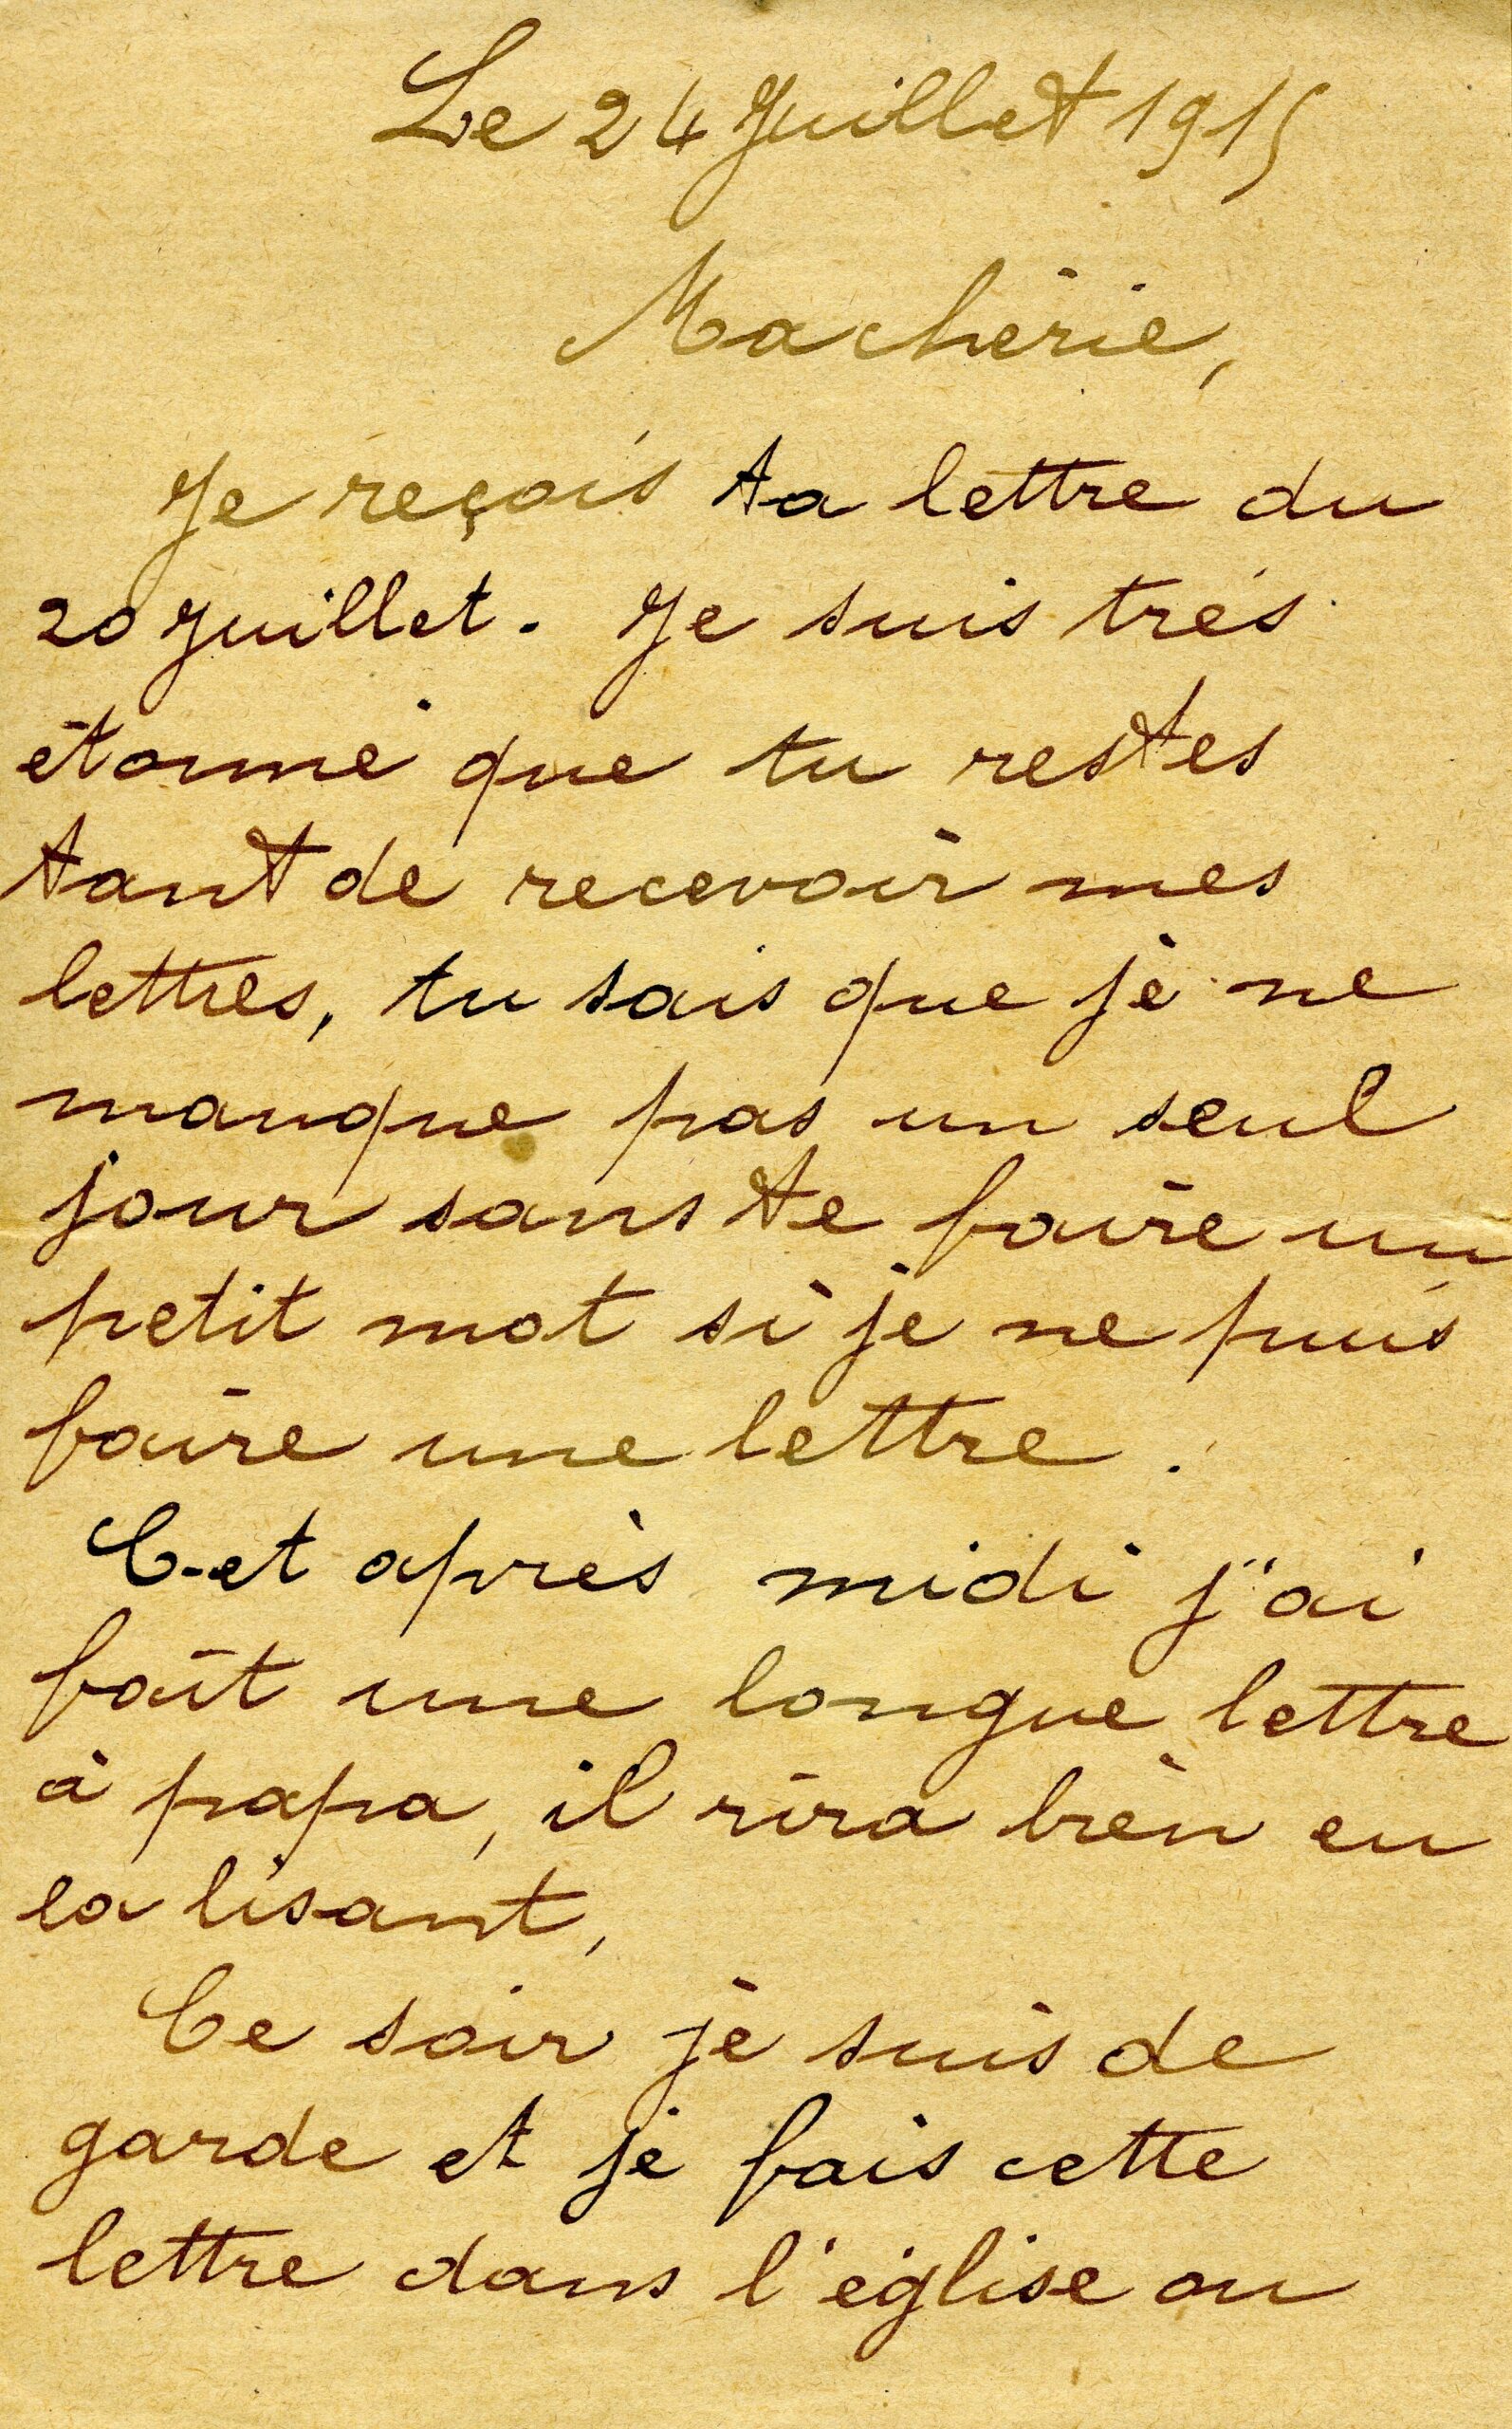 Le 24 Juillet 1915
Ma chérie,
Je reçois ta lettre du
20 Juillet. Je suis très
étonné que tu restes
tant de recevoir mes
lettres, tu sais que je ne
manque pas un seul
jour sans te faire un
petit mot si je ne puis
faire une lettre.
Cet après midi j'ai
fait une longue lettre
à papa, il rira bien en
la lisant,
Ce soir je suis de
garde et je fais cette
lettre dans l'église ou